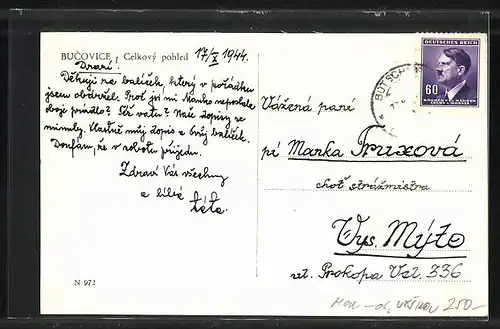 BUČOVICE, Celkový pohled 17/X 1944.
Drazí!
Děkuji za balíček, který v pořádku
jsem obdržel. Proč jsi mi Mařko neposlala
svoje prádlo? Naše dopisy se
minuly. Vlastně můj dopis a Tvůj balíček.
Doufám, že v sobotu přijedu.
Zdraví Vás všechny
a líbá
táta.
N 972
Vážená paní
pí Marka Truxová
choť strážmistra
Vys. Mýto
ul. Prokopa Vel. 336
DEUTSCHES REICH
60
BÖHMEN u. MÄHREN
ČECHY a MORAVA
BUTSCH
250.-